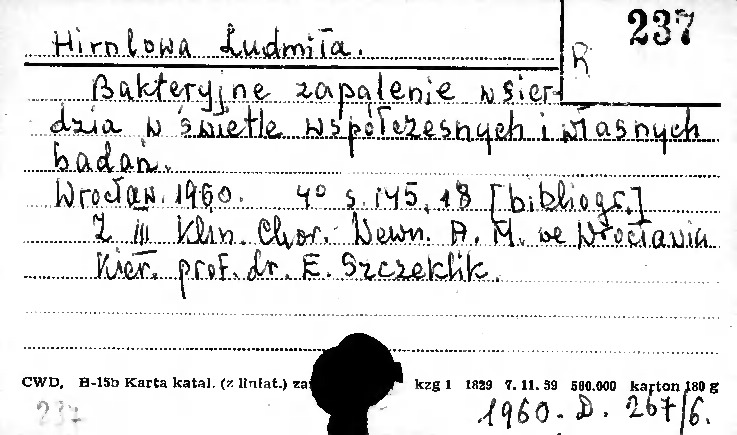 237
R
Hirnlowa Ludmiła.
Bakteryjne zapalenie wsier-
dzia w świetle współczesnych i własnych
badań.
Wrocław. 1960. 4° s. 145, 18 [bibliogr.]
Z III Klin. Chor. Wewn. A. M. we Wrocławiu
Kier. prof. dr. E. Szczeklik.
CWD, H-15b Karta katal. (z liniat.) kzg 1 1829 7. 11. 59 500.000 karton 180 g
237
1960. D. 267/6.